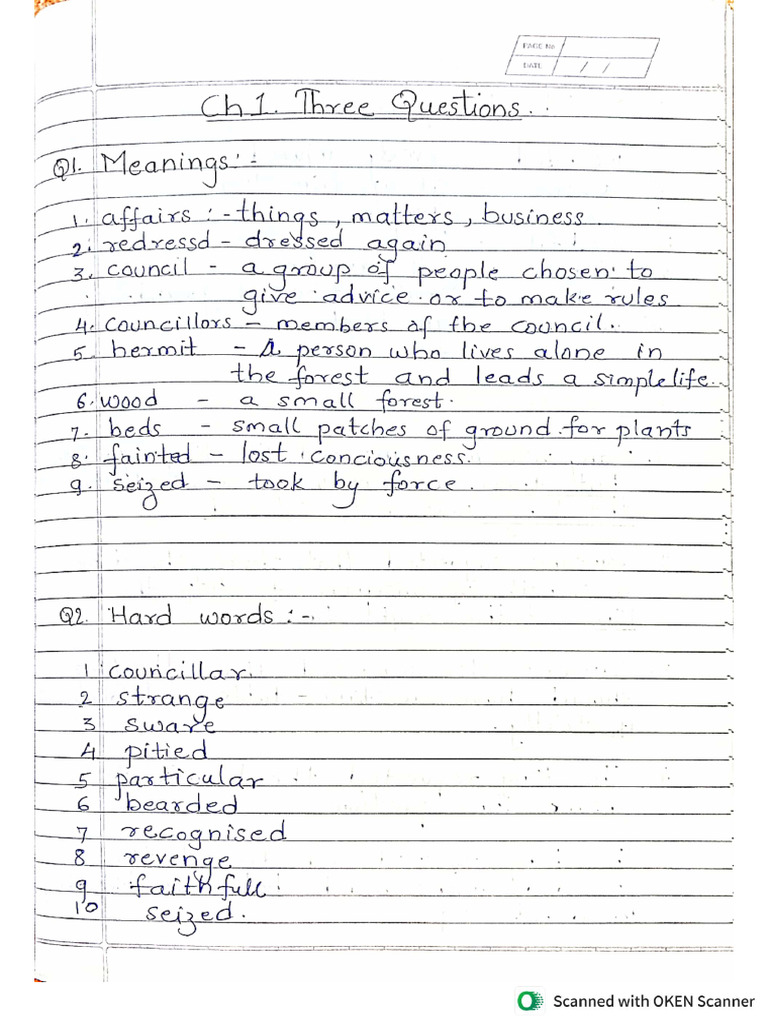 PAGE No
DATE / /
Ch 1. Three Questions..
Q1. Meanings :-
1. affairs :- things, matters, business
2. redressd - dressed again
3. council - a group of people chosen to
give advice or to make rules
4. councillors - members of the council.
5. hermit - A person who lives alone in
the forest and leads a simple life.
6. wood - a small forest.
7. beds - small patches of ground for plants
8. fainted - lost conciousness.
9. seized - took by force.
Q2. Hard words :-
1 councillar.
2 strange
3 sware
4 pitied
5 particular
6 bearded
7 recognised
8 revenge
9 faithfull
10 seized.
Scanned with OKEN Scanner